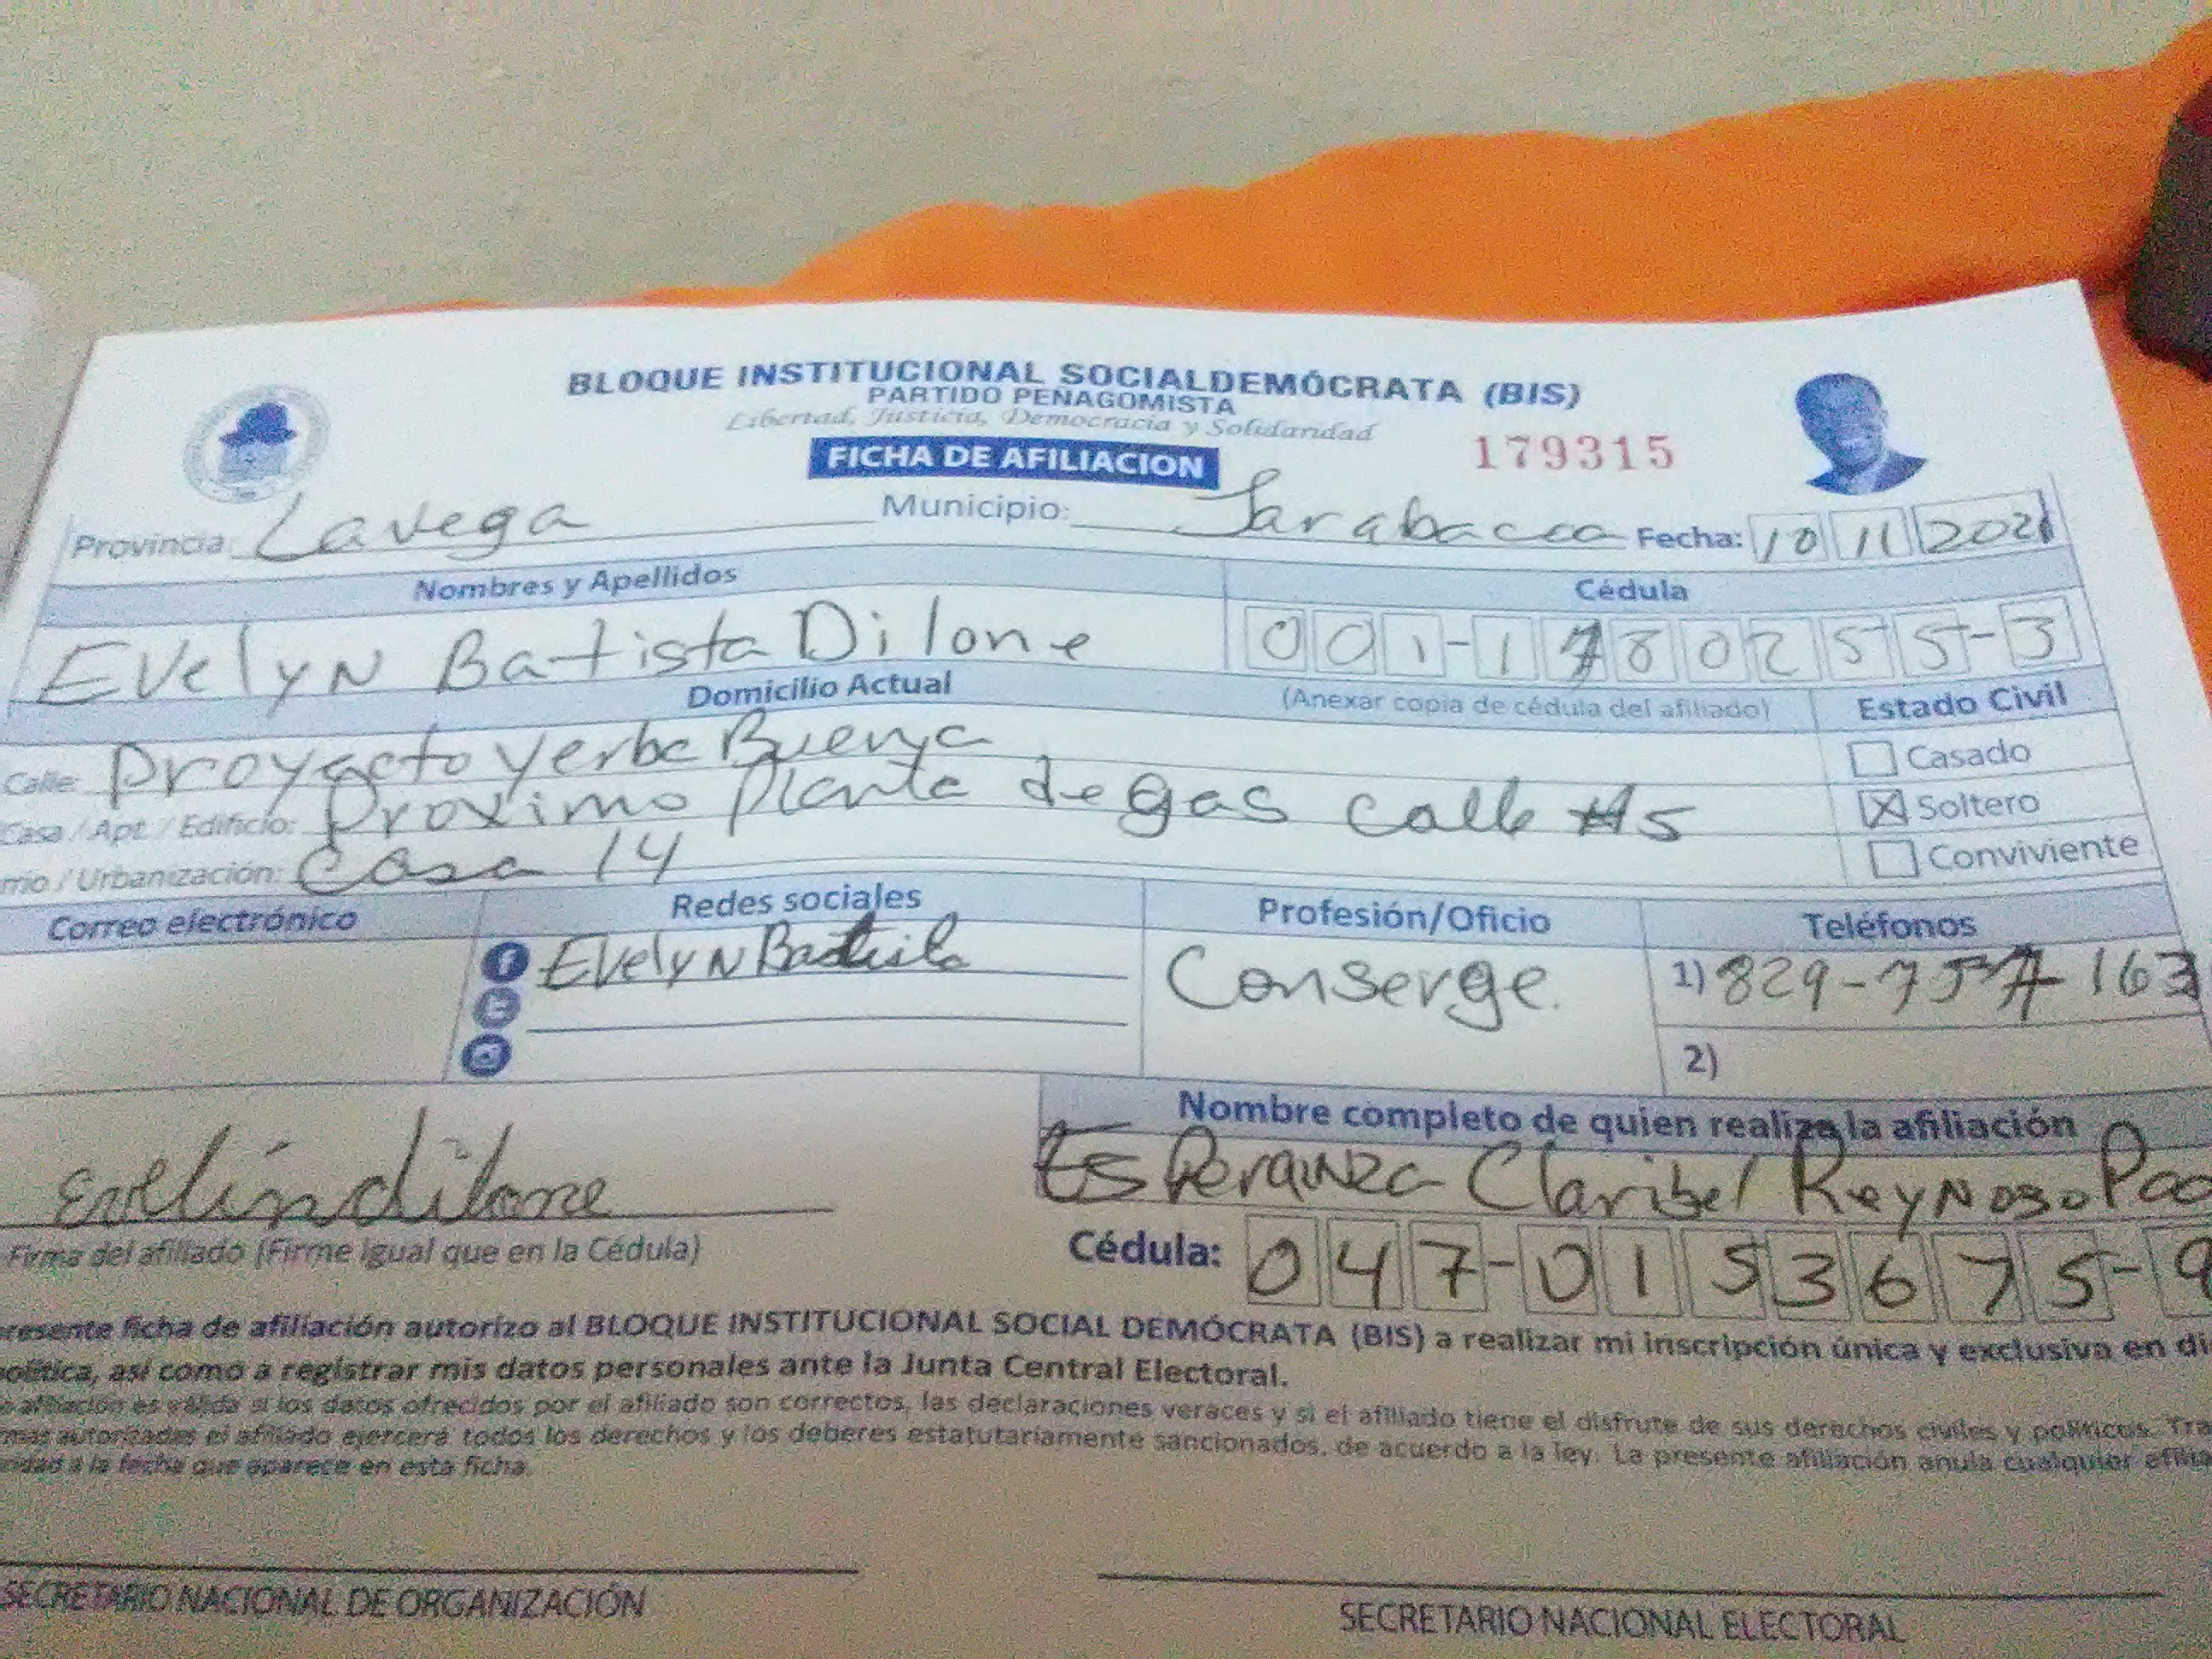 BLOQUE INSTITUCIONAL SOCIALDEMÓCRATA (BIS)
PARTIDO PEÑAGOMISTA
Libertad, Justicia, Democracia y Solidaridad
FICHA DE AFILIACION 179315
Provincia: Lavega Municipio: Jarabacoa Fecha: 10 11 2021
Nombres y Apellidos Cédula
Evelyn Batista Dilone 001-1780255-3
Domicilio Actual (Anexar copia de cédula del afiliado) Estado Civil
Calle: Proyecto Yerba Buena Casado
Casa / Apt. / Edificio: Proximo Planta de gas calle #5 X Soltero
rrio / Urbanización: Casa 14 Conviviente
Correo electrónico Redes sociales Profesión/Oficio Teléfonos
Evelyn Batista Conserge. 1) 829- 163
2)
Nombre completo de quien realiza la afiliación
Evelin dilone Esperanza Claribel Reynoso
Firma del afiliado (Firme igual que en la Cédula) Cédula: 047-0153675-9
resente ficha de afiliación autorizo al BLOQUE INSTITUCIONAL SOCIAL DEMÓCRATA (BIS) a realizar mi inscripción única y exclusiva en di
política, así como a registrar mis datos personales ante la Junta Central Electoral.
afiliación es válida si los datos ofrecidos por el afiliado son correctos, las declaraciones veraces y si el afiliado tiene el disfrute de sus derechos civiles y políticos. Tra
mas autorizadas el afiliado ejercerá todos los derechos y los deberes estatutariamente sancionados, de acuerdo a la ley. La presente afiliación anula cualquier afilia
ridad a la fecha que aparece en esta ficha.
SECRETARIO NACIONAL DE ORGANIZACIÓN SECRETARIO NACIONAL ELECTORAL